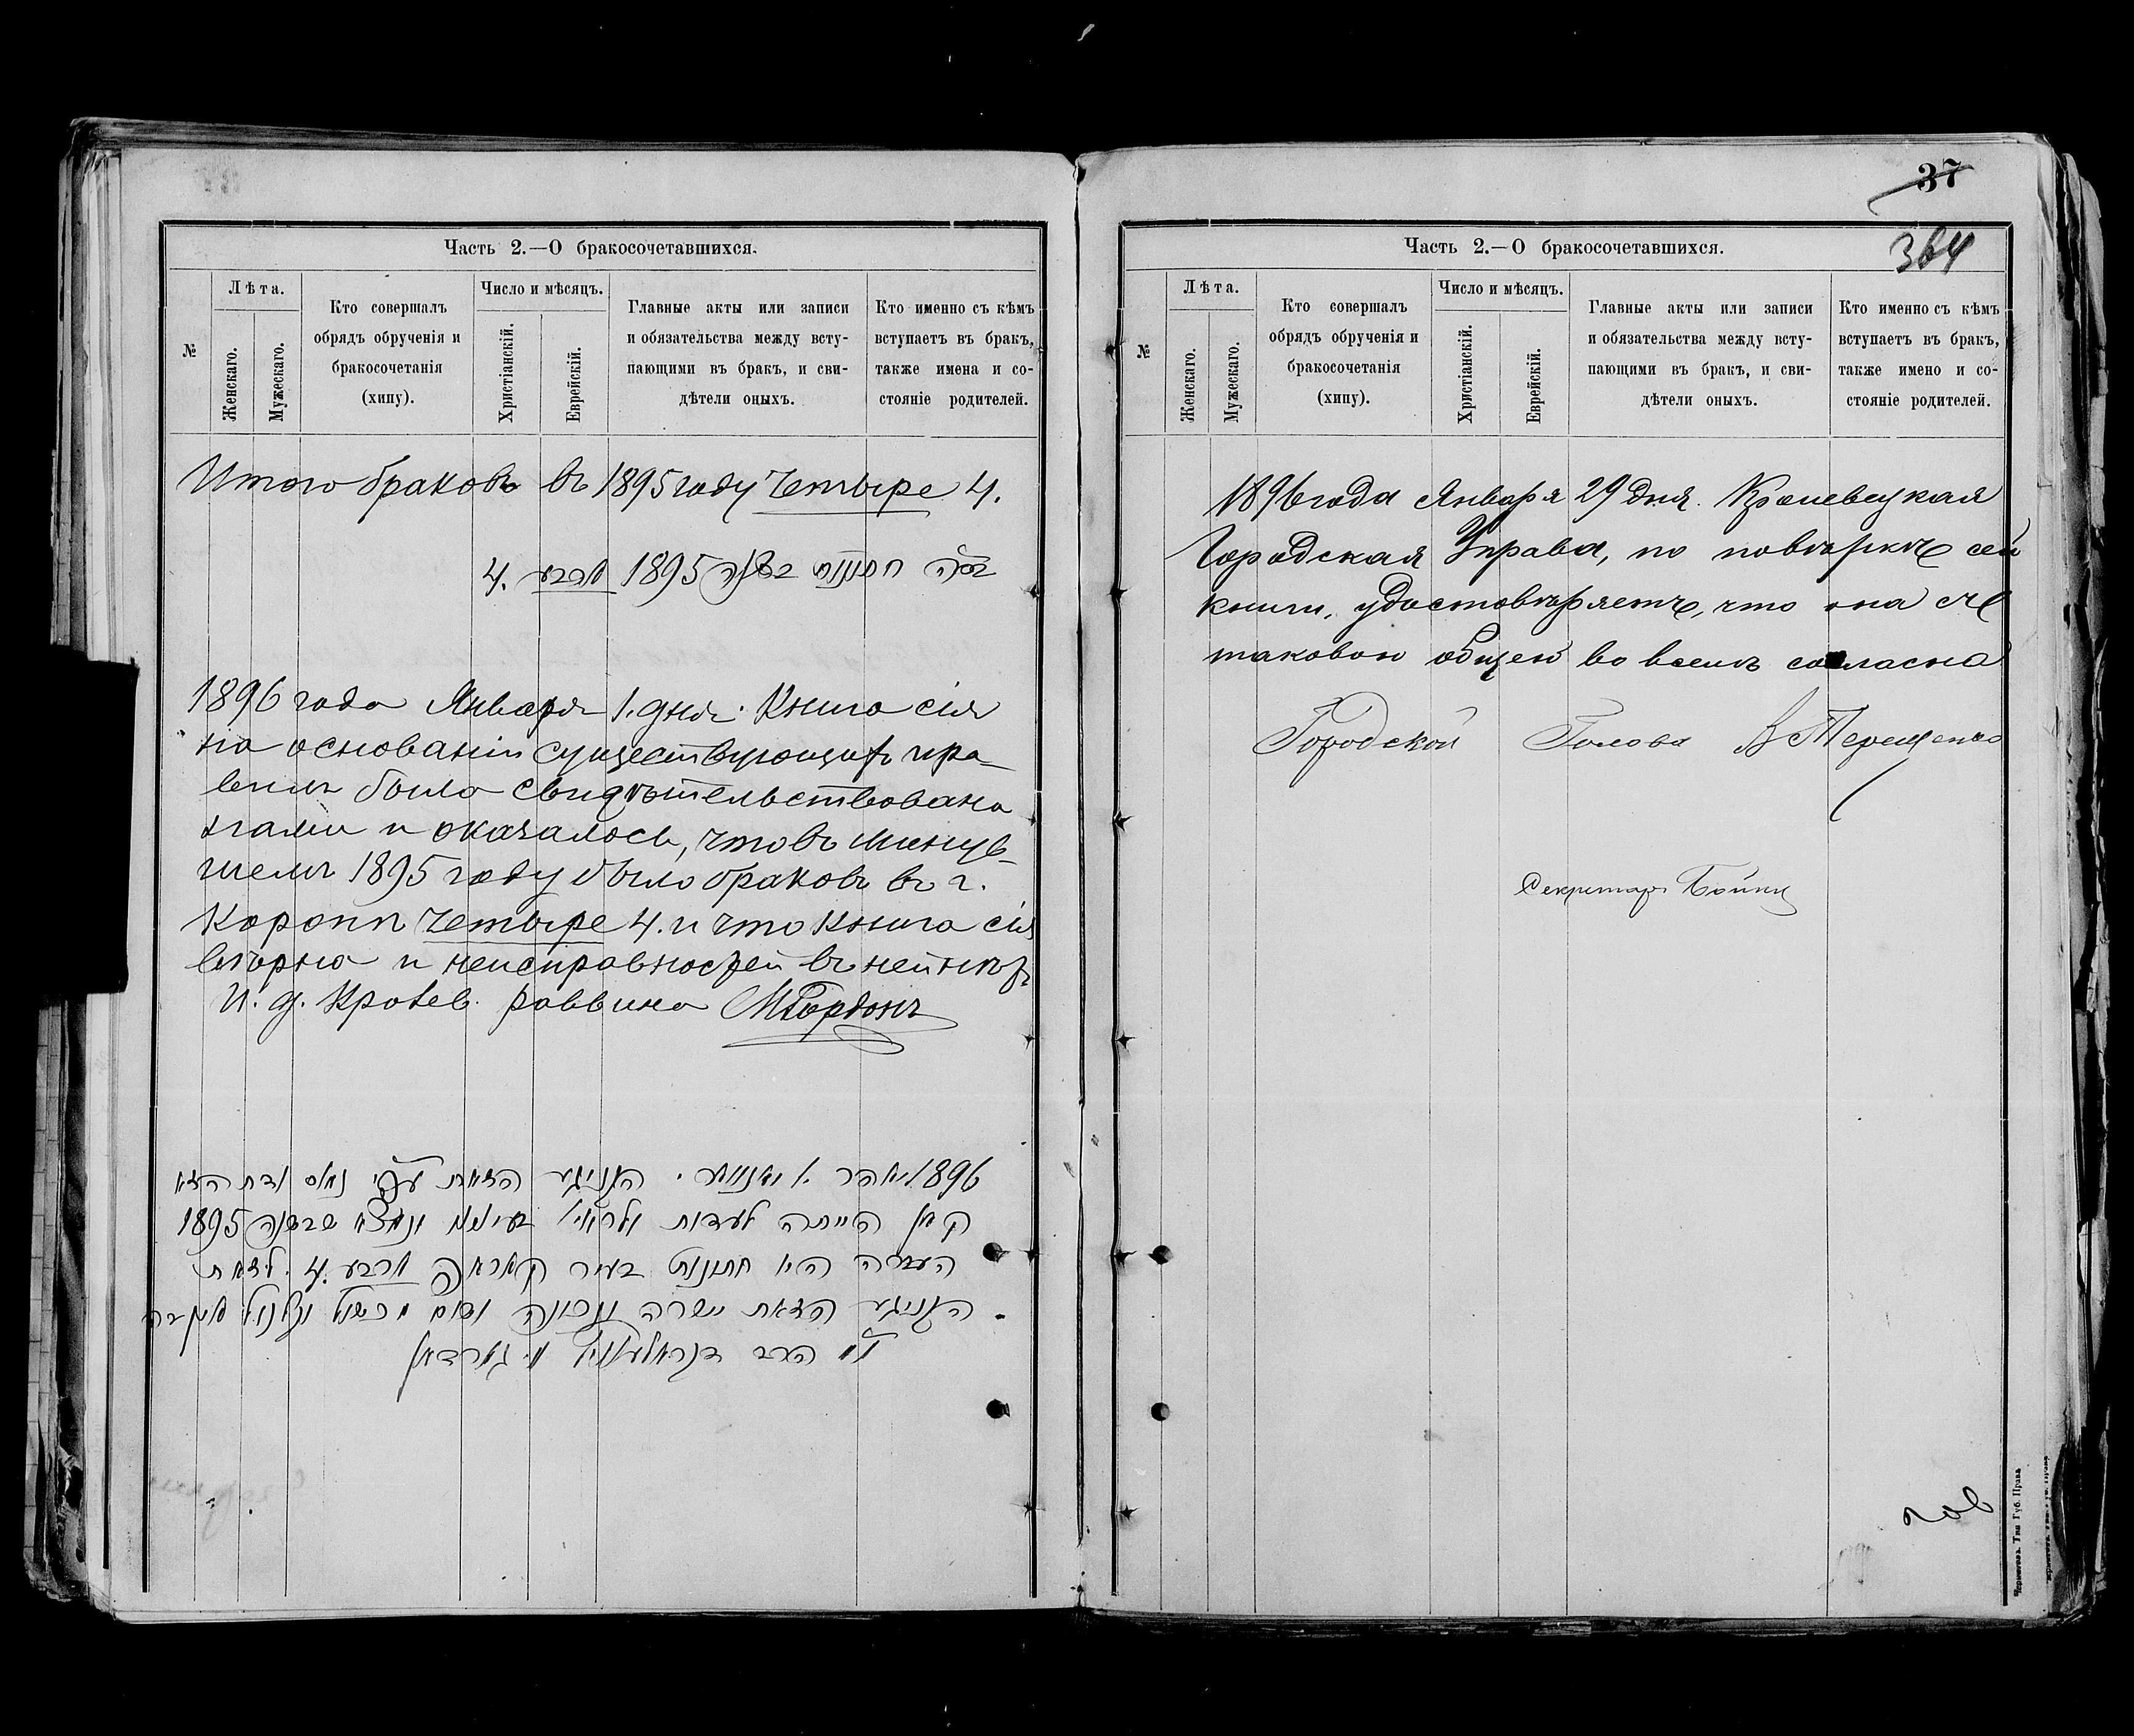 Часть 2.—О бракосочетавшихся.
№
Лѣта.
Женскаго.
Мужескаго.
Кто совершалъ
обрядъ обрученія и
бракосочетанія
(хипу).
Число и мѣсяцъ.
Христіанскій.
Еврейскій.
Главные акты или записи
и обязательства между всту-
пающими въ бракъ, и сви-
дѣтели оныхъ.
Кто именно съ кѣмъ
вступаетъ въ бракъ,
также имена и со-
стояніе родителей.
Итого браковъ въ 1895 году четыре 4.
חתונות בשנה 1895 ארבע 4.
1896 года Января 1. дня. Книга сія
на основаніи существующихъ пра-
вилъ была свидѣтельствована
нами и оказалось, что въ минув-
шемъ 1895 году было браковъ въ г.
Коропѣ четыре 4. и что книга сія
вѣрна и неисправностей въ ней нѣтъ
И. д. Кролев. раввина МГордонъ
1896 יאהר 1 יאנוואר
לעדות ונמצא שבשנה 1895
העברה היו חתונות בעיר קאראפ ארבע 4.
הזאת ישרה ונכונה
הרב
37
364
Часть 2.—О бракосочетавшихся.
№
Лѣта.
Женскаго.
Мужескаго.
Кто совершалъ
обрядъ обрученія и
бракосочетанія
(хипу).
Число и мѣсяцъ.
Христіанскій.
Еврейскій.
Главные акты или записи
и обязательства между всту-
пающими въ бракъ, и сви-
дѣтели оныхъ.
Кто именно съ кѣмъ
вступаетъ въ бракъ,
также имено и со-
стояніе родителей.
1896 года Января 29 дня. Кролевецкая
Городская Управа, по повѣркѣ сей
книги, удостовѣряетъ, что она съ
таковою общей во всемъ согласна
Городской Голова В Терещенко
Секретарь
Чернигов. Тип. Губ. Правл.